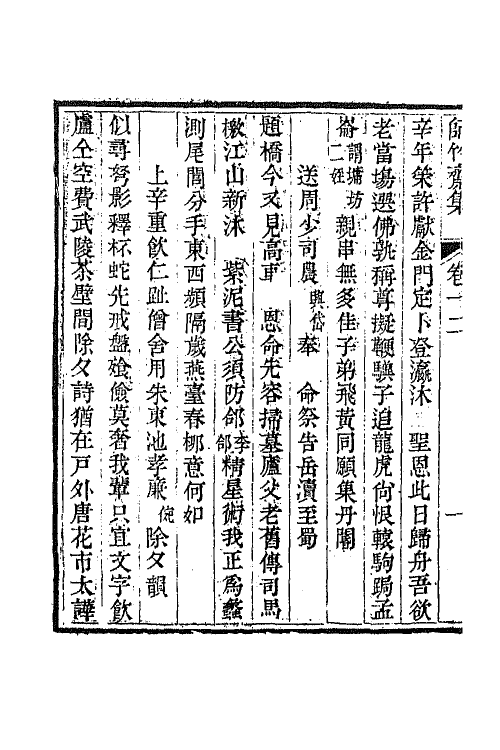 師竹齋集　卷十二　一
辛年榮許獻金門定卜登瀛沐　聖恩此日歸舟吾欲
老當場選佛孰稱尊擬鞭驥子追龍虎尙恨轅駒跼孟
崙謂墉坊二侄親串無多佳子弟飛黃同願集丹閣
送周少司農興岱奉　命祭告岳瀆至蜀
題橋今又見高車　恩命先容掃墓廬父老舊傳司馬
檄江山新沐　紫泥書公須防郃李郃精星術我正爲蠡
測尾閭分手東西頻隔歲燕臺春柳意何如
上辛重飮仁趾僧舍用朱東池孝廉除夕韻
似尋弩影釋杯蛇先戒盤飱儉莫奢我輩只宜文字飮
盧仝空費武陵茶壁間除夕詩猶在戸外唐花市太譁